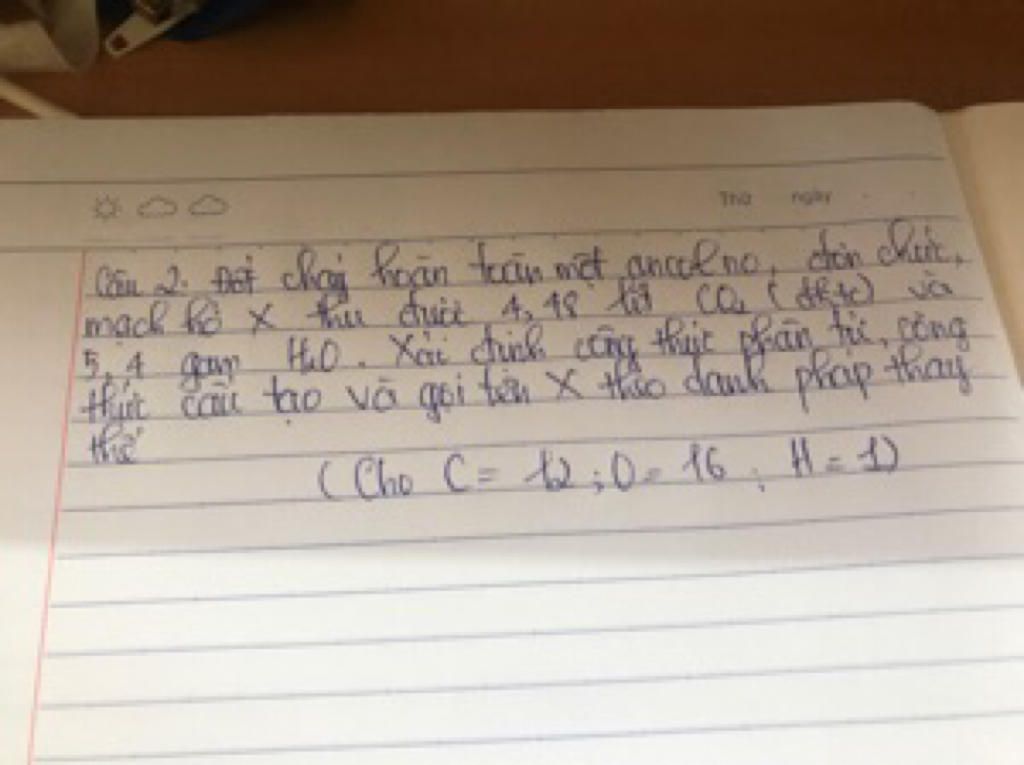 Thứ ngày
Câu 2. Đốt cháy hoàn toàn một ancol no, đơn chức,
mạch hở X thu được 4,48 lít CO₂ (đktc) và
5,4 gam H₂O. Xác định công thức phân tử, công
thức cấu tạo và gọi tên X theo danh pháp thay
thế
(Cho C = 12 ; O = 16 ; H = 1)